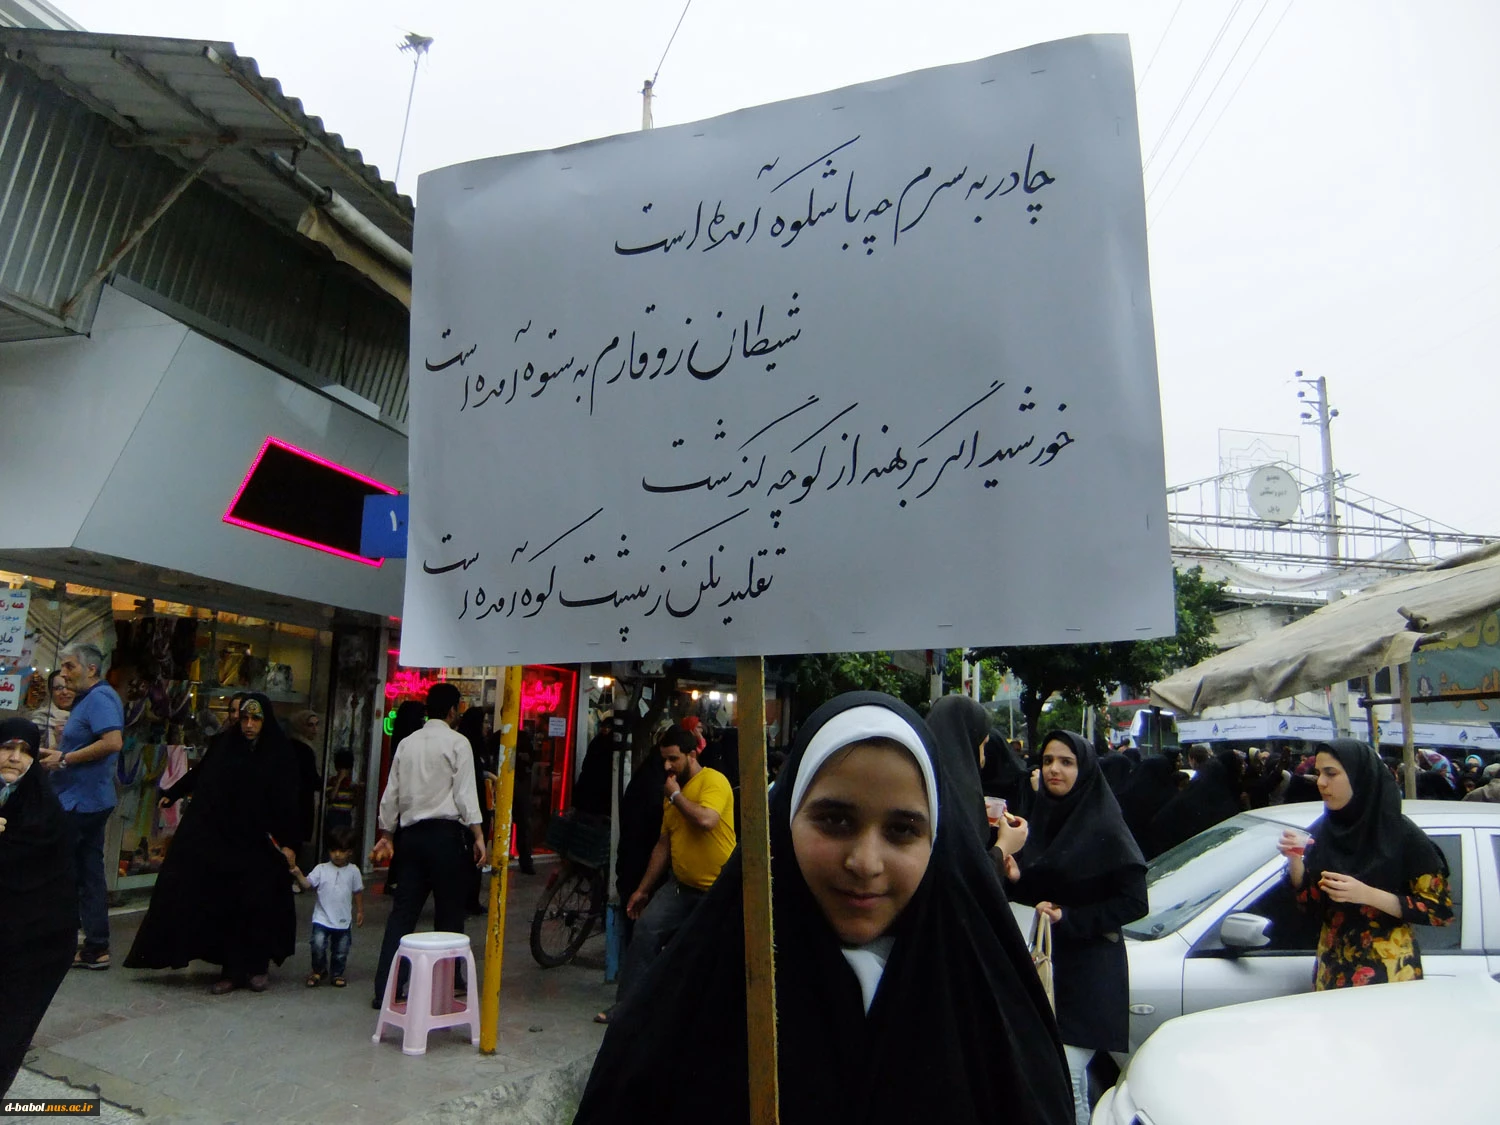 چادر به سرم چه باشکوه آمده است
شیطان ز وقارم به ستوه آمده است
خورشید اگر برهنه از کوچه گذشت
تقلید نکن ز پشت کوه آمده است
۱۰
همه رنگ
d-babol.nus.ac.ir